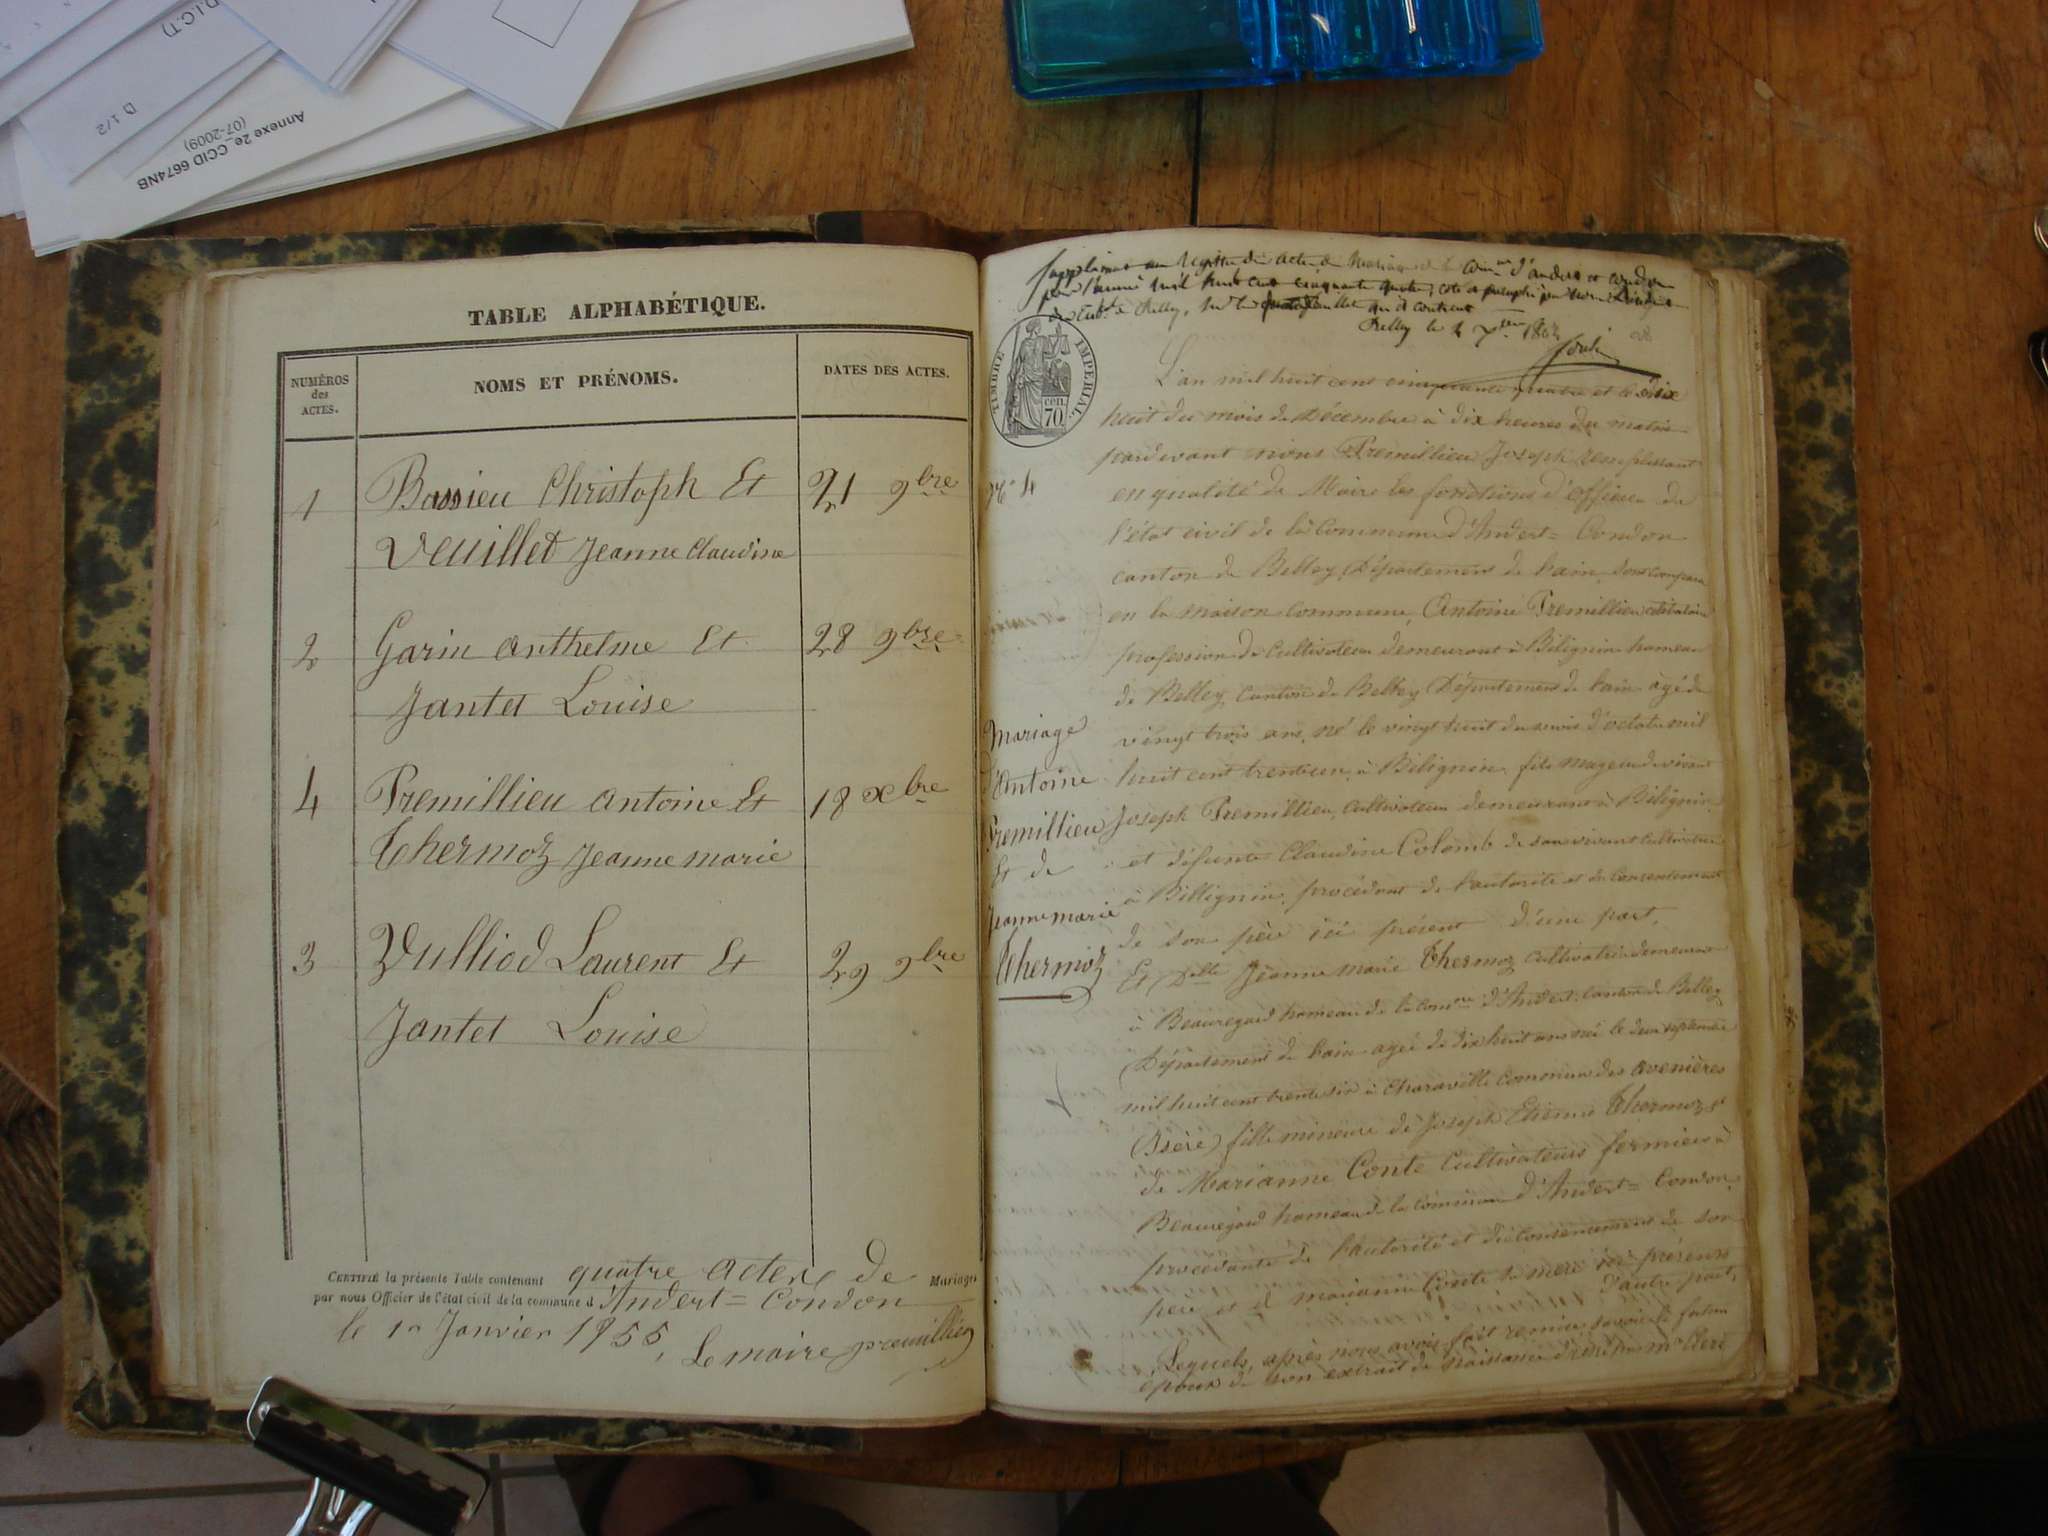 D.I.C.T)
D 1/2
Annexe 2e_CCID 6674NB
(07-2009)
TABLE ALPHABÉTIQUE.
NUMÉROS
des
ACTES.
NOMS ET PRÉNOMS.
DATES DES ACTES.
1 Bassieu Christoph Et 21 9bre
Veuillet Jeanne Claudine
2 Garin Anthelme Et 28 9bre
Jantet Louise
4 Premillieu Antoine Et 18 xbre
Thermoz Jeanne Marie
3 Vulliod Laurent Et 29 9bre
Jantet Louise
CERTIFIÉ la présente Table contenant quatre actes de Mariages
par nous Officier de l'état civil de la commune d'Andert = Condon
le 1r Janvier 1855,
Le maire premillieu
Supplément au registre des actes de Mariage de la Comne d'Andert et Condon
pour l'année mil huit cent cinquante quatre, coté et paraphé par nous
de Belley, sur le feuillet qu'il contient
Belley le 4 7bre 1862
TIMBRE IMPÉRIAL.
70 cen.
No 4
Mariage
d'Antoine
Premillieu
Et de
Jeanne Marie
Thermoz
L'an mil huit cent cinquante quatre et le dix
huit du mois de Décembre à dix heures du matin
pardevant nous Premillieu Joseph remplissant
en qualité de Maire les fonctions d'officier de
l'état civil de la Commune d'Andert = Condon
canton de Belley, Département de l'ain, sont comparu
en la maison commune, Antoine Premillieu célibataire
profession de Cultivateur demeurant à Bilignin hameau
de Belley, canton de Belley Département de l'ain âgé de
vingt trois ans, né le vingt huit du mois d'octobre mil
huit cent trente un, à Bilignin, fils majeur de vivant
Joseph Premillieu, cultivateur demeurant à Bilignin
et défunte Claudine Colomb de son vivant Cultivatrice
à Billignin, procédant de l'autorité et du Consentement
de son père ici présent d'une part.
Et Dlle Jeanne Marie Thermoz cultivatrice demeurant
à Beauregard hameau de la comne d'Andert, canton de Belley
Département de l'ain agée de dix huit ans née le deux septembre
mil huit cent trente six à Charaville Commune des Avenières
(Isère) fille mineure de Joseph Etienne Thermoz &
de Marianne Conte Cultivateurs fermiers à
Beauregard hameau de la commune d'Andert = Condon
procédante de l'autorité et du consentement de son
père et d marianne Conte sa mère ici présents
d'autre part,
Lesquels, après nous avoir fait remise savoir le futur
époux de son extrait de naissance